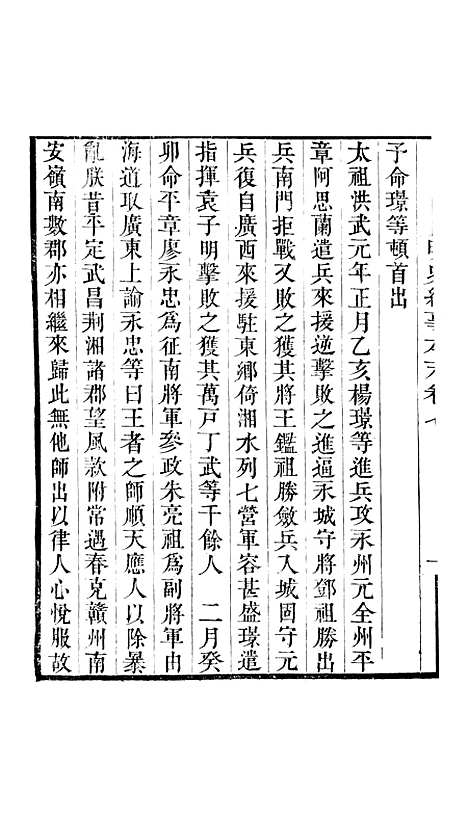 予命璟等頓首出
太祖洪武元年正月乙亥楊璟等進兵攻永州元全州平
章阿思蘭遣兵來援逆擊敗之進逼永城守將鄧祖勝出
兵南門拒戰又敗之獲其將王鑑祖勝斂兵入城固守元
兵復自廣西來援駐東鄉倚湘水列七營軍容甚盛璟遣
指揮袁子明擊敗之獲其萬戸丁武等千餘人　二月癸
卯命平章廖永忠爲征南將軍參政朱亮祖爲副將軍由
海道取廣東上諭永忠等曰王者之師順天應人以除暴
亂朕昔平定武昌荆湘諸郡望風款附常遇春克贛州南
安嶺南數郡亦相繼來歸此無他師出以律人心悅服故